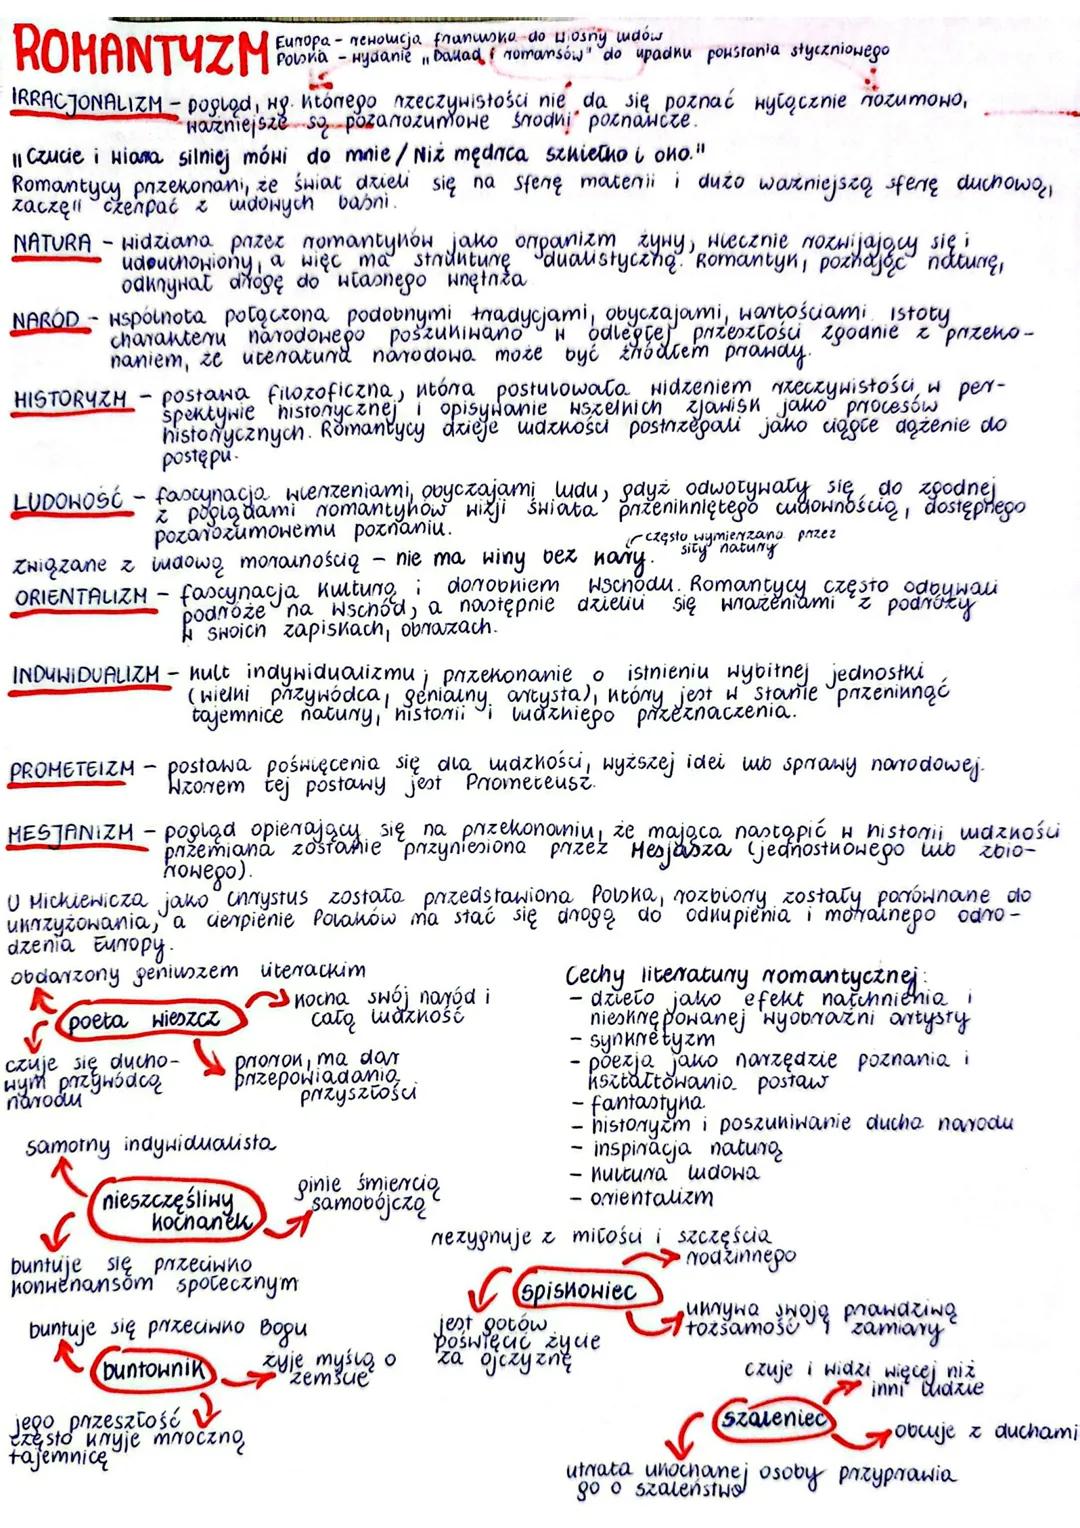 ROMANTYZM
Europa - rewolucja francuska do wiosny ludów
Polska - wydanie „Ballad i romansów" do upadku powstania styczniowego
IRRACJONALIZM - pogląd, wg. którego rzeczywistości nie da się poznać wyłącznie rozumowo,
ważniejsze są pozarozumowe środki poznawcze.
„Czucie i wiara silniej mówi do mnie / Niż mędrca szkiełko i oko."
Romantycy przekonani, że świat dzieli się na sferę materii i dużo ważniejszą sferę duchową,
zaczęli czerpać z ludowych baśni.
NATURA - widziana przez romantyków jako organizm żywy, wiecznie rozwijający się i
uduchowiony, a więc ma strukturę dualistyczną. Romantyk, poznając naturę,
odkrywał drogę do własnego wnętrza
NARÓD - wspólnota połączona podobnymi tradycjami, obyczajami, wartościami. Istoty
charakteru narodowego poszukiwano w odległej przeszłości zgodnie z przeko-
naniem, że literatura narodowa może być źródłem prawdy.
HISTORYZM - postawa filozoficzna, która postulowała widzeniem rzeczywistości w per-
spektywie historycznej i opisywanie wszelkich zjawisk jako procesów
historycznych. Romantycy dzieje ludzkości postrzegali jako ciągłe dążenie do
postępu.
LUDOWOŚĆ - fascynacja wierzeniami, obyczajami ludu, gdyż odwoływały się do zgodnej
z poglądami romantyków wizji świata przenikniętego cudownością, dostępnego
pozarozumowemu poznaniu.
często wymierzano przez
siły natury
związane z ludową moralnością - nie ma winy bez kary.
ORIENTALIZM - fascynacja kulturą i dorobkiem wschodu. Romantycy często odbywali
podróże na wschód, a następnie dzielili się wrażeniami z podróży
w swoich zapiskach, obrazach.
INDYWIDUALIZM - kult indywidualizmu; przekonanie o istnieniu wybitnej jednostki
(wielki przywódca, genialny artysta), który jest w stanie przeniknąć
tajemnice natury, historii i ludzkiego przeznaczenia.
PROMETEIZM - postawa poświęcenia się dla ludzkości, wyższej idei lub sprawy narodowej.
Wzorem tej postawy jest Prometeusz.
MESJANIZM - pogląd opierający się na przekonaniu, że mająca nastąpić w historii ludzkości
przemiana zostanie przyniesiona przez Mesjasza (jednostkowego lub zbio-
rowego).
U Mickiewicza jako Chrystus została przedstawiona Polska, rozbiory zostały porównane do
ukrzyżowania, a cierpienie Polaków ma stać się drogą do odkupienia i moralnego odro-
dzenia Europy.
obdarzony geniuszem literackim
poeta wieszcz
kocha swój naród i
całą ludzkość
czuje się ducho-
wym przywódcą
narodu
prorok, ma dar
przepowiadania
przyszłości
Cechy literatury romantycznej:
- dzieło jako efekt natchnienia i
nieskrępowanej wyobraźni artysty
- synkretyzm
- poezja jako narzędzie poznania i
kształtowania postaw
- fantastyka
- historyzm i poszukiwanie ducha narodu
- inspiracja naturą
- kultura ludowa
- orientalizm
samotny indywidualista
nieszczęśliwy
kochanek
ginie śmiercią
samobójczą
buntuje się przeciwko
konwenansom społecznym
rezygnuje z miłości i szczęścia
rodzinnego
spiskowiec
jest gotów
poświęcić życie
za ojczyznę
ukrywa swoją prawdziwą
tożsamość i zamiary
buntuje się przeciwko Bogu
buntownik
żyje myślą o
zemście
jego przeszłość
często kryje mroczną
tajemnicę
czuje i widzi więcej niż
inni ludzie
szaleniec
obcuje z duchami
utrata ukochanej osoby przyprawia
go o szaleństwo